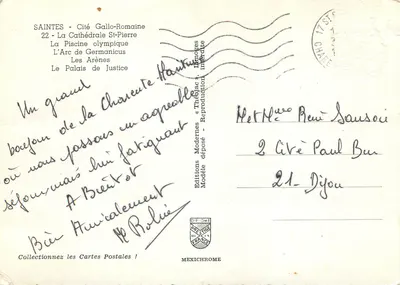 SAINTES - Cité Gallo-Romaine
22 - La Cathédrale St-Pierre
La Piscine olympique
L'Arc de Germanicus
Les Arènes
Le Palais de Justice
Un grand
bonjour de la Charente Maritime
où nous passons un agréable
séjour mais bien fatigant
A Bientot
Bien Amicalement
Editions Modernes « Théojac » Limoges
Modèle déposé - Reproduction interdite
17 ST
M et Mme René
2 Cité Paul Bur
21 - Dijon
MEXICHROME
Collectionnez les Cartes Postales !